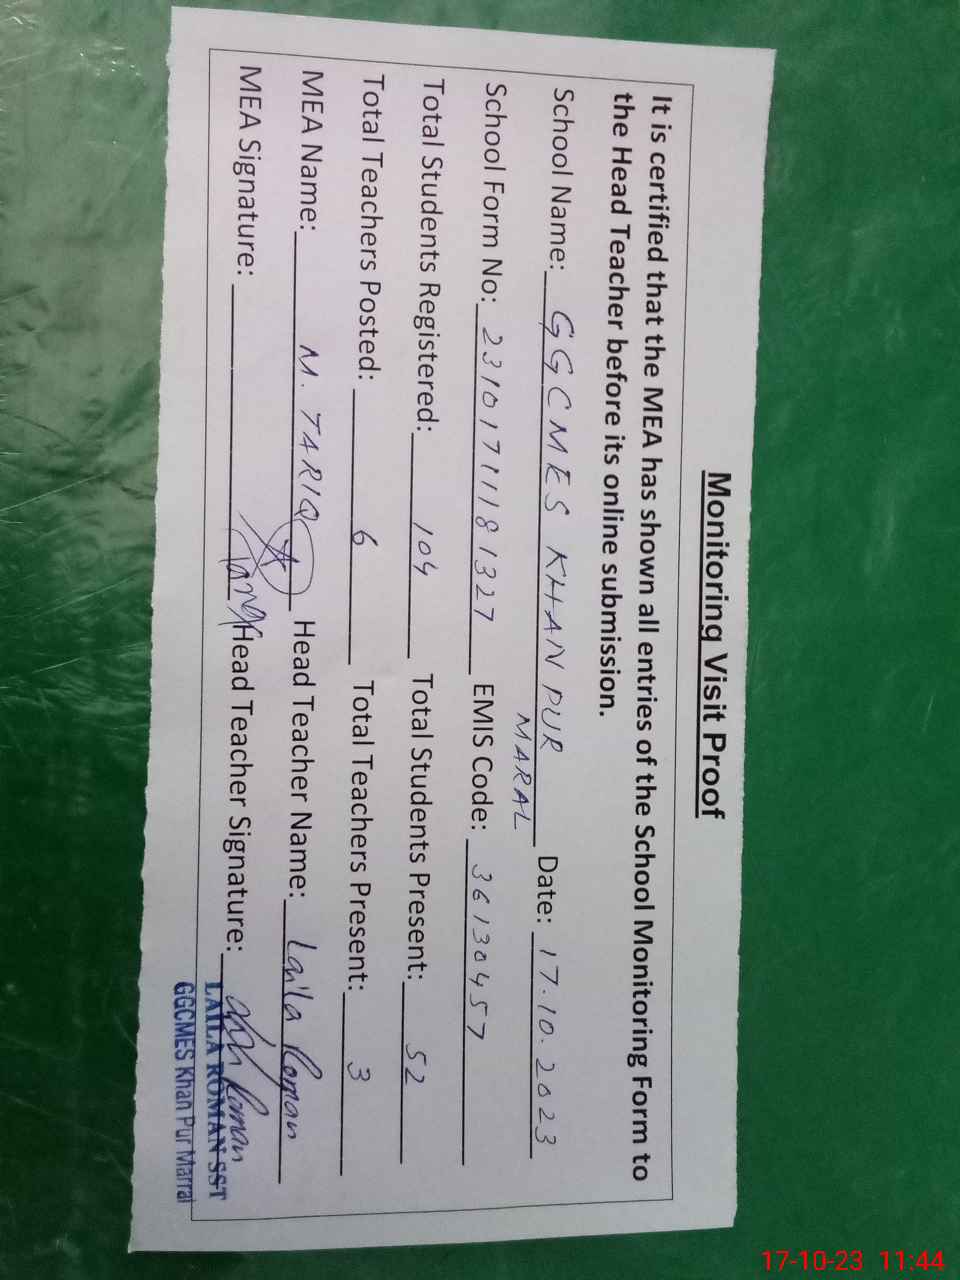 Monitoring Visit Proof
It is certified that the MEA has shown all entries of the School Monitoring Form to
the Head Teacher before its online submission.
School Name: GGCMES KHAN PUR MARAL Date: 17.10.2023
School Form No: 23101711181327 EMIS Code: 36130457
Total Students Registered: 104 Total Students Present: 52
Total Teachers Posted: 6 Total Teachers Present: 3
MEA Name: M. TARIQ Head Teacher Name: Laila Roman
MEA Signature: Head Teacher Signature: Roman
LAILA ROMAN SST
GGCMES Khan Pur Marral
17-10-23 11:44